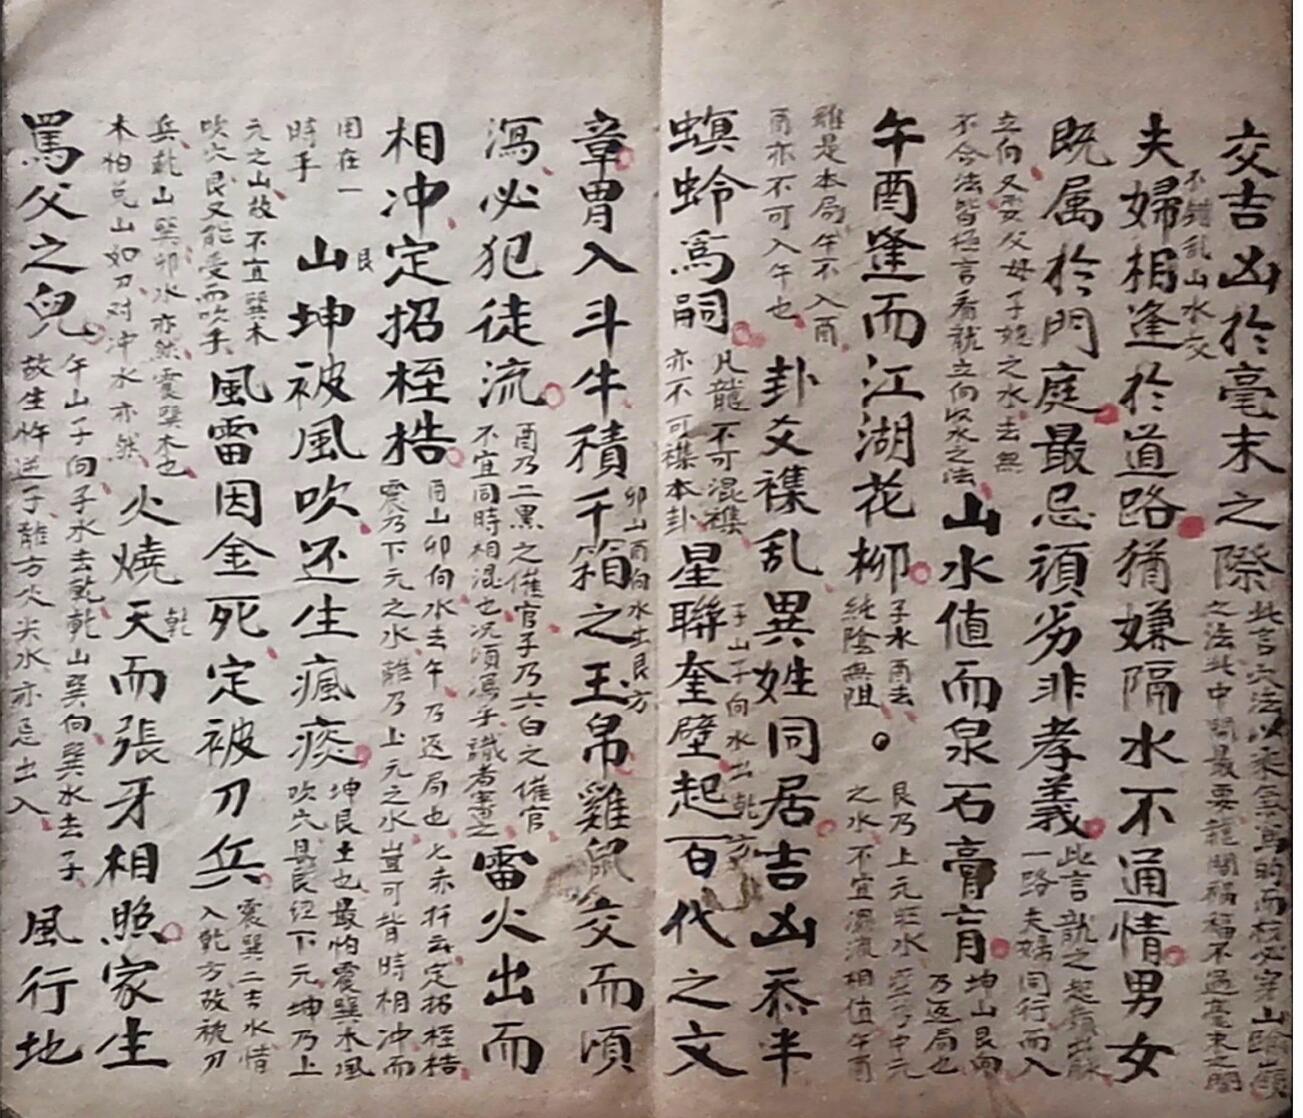 交吉凶於毫末之際
此言穴法以乘氣為的而枝必穿山踰嶺
之法此中間最要龍關禍福不過毫末之間
夫婦相逢於道路猶嫌隔水不通情男女
不錯乱山水交
既属於門庭最忌頑劣非孝義
此言龍之起嶺出脉
一路夫婦同行而入
立向又要父母子媳之水去無
不合法皆極言看龍立向以水之法
山水値而泉石膏肓
坤山艮向
乃返局也
午酉逢而江湖花柳
子水酉去
純陰無阻
。
艮乃上元旺水乃中元
之水不宜濕流相值午酉
雖是本局午不入酉
酉亦不可入午也
卦爻襍乱異姓同居吉凶忝半
螟蛉爲嗣
凡龍不可混襍
亦不可襍本卦
星聯奎壁起百代之文
子山子向水出乾方
章胃入斗牛積千箱之玉帛雞鼠交而頃
卯山酉向水出艮方
瀉必犯徒流
酉乃二黒之催官子乃六白之催官
不宜同時相混也况頃瀉乎識者審之
雷火出而
相冲定招桎梏
酉山卯向水去午乃返局也七赤扞云定招桎梏
震乃下元之水離乃上元之水豈可皆時相冲而
用在一
時乎
山坤被風吹还生瘋痰
艮
坤艮土也最怕震巽木風
吹穴艮下元坤乃上
元之山故不宜巽木
吹穴艮又能受而吹乎
風雷因金死定被刀兵
震巽二吉水惜
入乾方故被刀
兵乾山巽卯水亦然震巽木也
木怕兑山如刀对冲水亦然
火燒天而張牙相照家生
乾
罵父之兒
午山子向子水去乾乾山巽向巽水去子
故生忤逆子離方火尖水亦忌出入
風行地